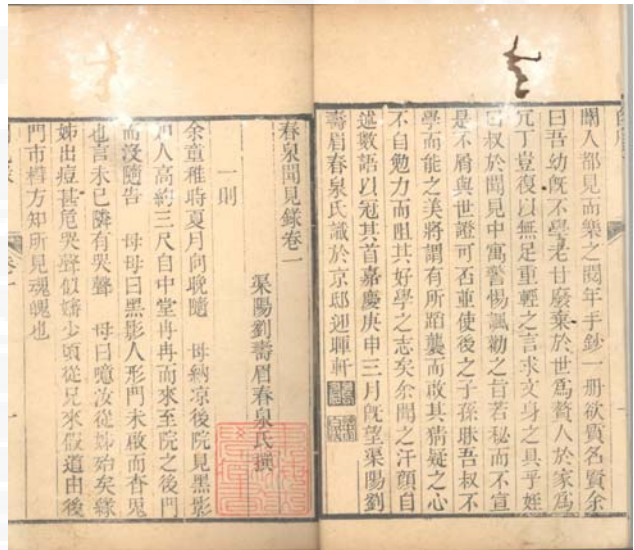 聞人都見而樂之閱年手鈔一冊欲質名賢余
曰吾幼既不學老甘廢棄於世爲贅人於家爲
冗丁豈復以無足重輕之言求文身之具乎姪
曰叔於聞見中寓警惕諷勸之旨若秘而不宣
是不屑與世證可否並使後之子孫聯吾叔不
學而能之美將謂有所蹈襲而啟其猜疑之心
不自勉力而阻其好學之志矣余聞之汗顏自
述數語以冠其首嘉慶庚申三月既望渠陽劉
壽眉春泉氏識於京邸迎暉軒
春泉聞見錄卷一
渠陽劉壽眉春泉氏撰
一則
余童稚時夏月向晚隨 母納凉後院見黑影
如人高約三尺自中堂冉冉而來至院之後門
而没隨告 母母曰黑影人形門未啟而杳鬼
也言未已隣有哭聲 母曰噫汝從姊殆矣緣
姊出痘甚危哭聲似嬸少頃從兄來假道由後
門市槥方知所見魂魄也